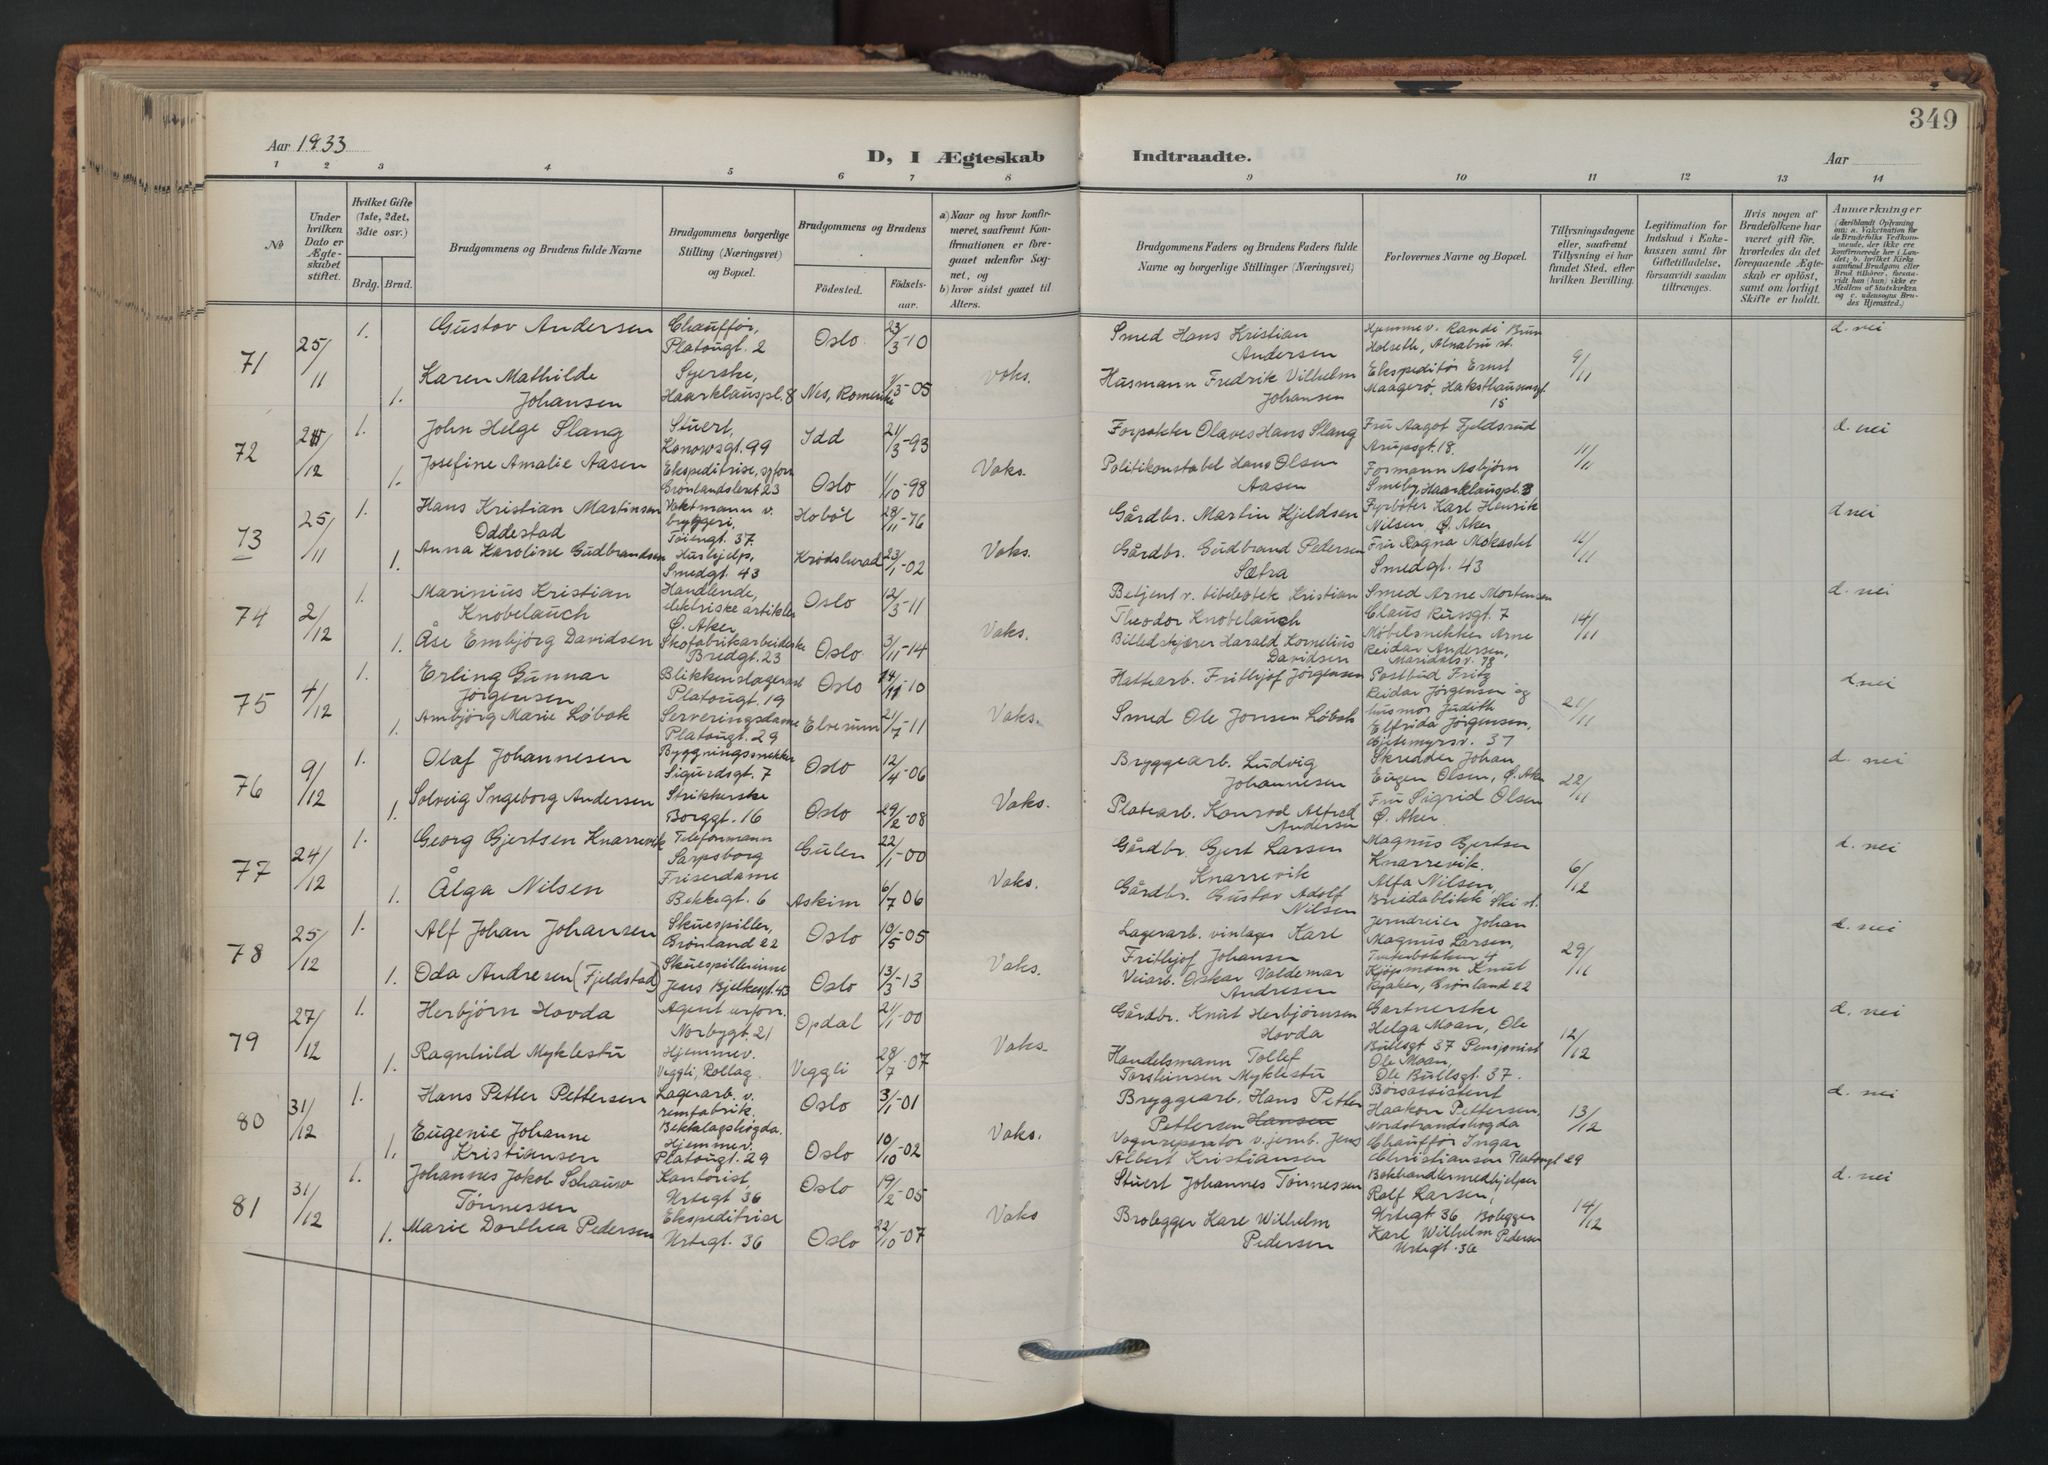 Aar 1933
D, I Ægteskab Indtraadte.
Aar
349
1 2 3 4 5 6 7 8 9 10 11 12 13 14
No
Under hvilken Dato er Ægteskabet stiftet.
Hvilket Gifte (1ste, 2det, 3die osv.)
Brdg. Brud.
Brudgommens og Brudens fulde Navne
Brudgommens borgerlige Stilling (Næringsvei) og Bopæl.
Brudgommens og Brudens
Fødested. Fødselsaar.
a) Naar og hvor konfirmeret, saafremt Konfirmationen er foregaaet udenfor Sognet, og
b) hvor sidst gaaet til Alters.
Brudgommens Faders og Brudens Faders fulde Navne og borgerlige Stillinger (Næringsvei)
Forlovernes Navne og Bopæl.
Tillysningsdagene eller, saafremt Tillysning ei har fundet Sted, efter hvilken Bevilling.
Legitimation for Indskud i Enkekassen samt for Giftetilladelse, forsaavidt saadan tiltrænges.
Hvis nogen af Brudefolkene har været gift før, hvorledes da det foregaaende Ægteskab er opløst, samt om lovligt Skifte er holdt.
Anmærkninger
71 25/11
1. Gustav Andersen
Chauffør, Platougt. 2
Oslo 23/3-10
Smed Hans Kristian Andersen
Holseth, Alnabru st.
9/11
d. nei
1. Karen Mathilde Johansen
Syerske, Haarklauspl. 8
Nes, Romerike /3-05
Vaks.
Husmann Fredrik Vilhelm Johansen
Ekspeditør Ernst Maagerø, Haksthausensgt 15
72 /12
1. John Helge Slang
Stuert, Konowsgt 99
Idd 21/3-93
Forpakter Olaves Hans Slang
Fru Aagot Fjeldsrud Arupsgt. 18.
11/11
d. nei
1. Josefine Amalie Aasen
Ekspeditrise, Grønlandsleret 23
Oslo 1/10-98
Vaks.
Politikonstabel Hans Olsen Aasen
Formann Asbjørn Smeby, Haarklauspl. 3
73 25/11
1. Hans Kristian Martinsen Oddestad
Vaktmann v. bryggeri, Tøiengt. 37.
Hobøl 28/11-76
Gårdbr. Martin Kjeldsen
Fyrbøter Karl Henrik Nilsen, Ø. Aker
/11
d nei
1. Anna Karoline Gudbrandsen
Hushjelp, Smedgt. 43
Krødsherad 23/1-02
Vaks.
Gårdbr. Gudbrand Pedersen Sætra
Fru Ragna Mokastet Smedgt. 43
74 2/12
1. Marinius Kristian Knobelauch
Handlende, elektriske artikler Ø. Aker
Oslo 12/3-11
Betjent v. bibelotek Kristian Theodor Knobelauch
Smed Arne Mortensen Claus Riisgt. 7
14/11
d. nei
1. Åse Embjörg Davidsen
Skofabrikarbeiderske Bredgt. 23
Oslo 3/11-14
Vaks.
Billedskjærer Harald Kornelius Davidsen
Møbelsnekker Arne Reidar Andersen, Maridalsv. 78
75 4/12
1. Erling Gunnar Jörgensen
Blikkenslagerarb Platougt. 19
Oslo 14/11-10
Hattearb. Frithjof Jörgensen
Postbud Fritz Reidar Jörgensen og husmor Judith Elfrida Jörgensen, Gjetemyrsv. 37
21/11
d. nei
1. Ambjörg Marie Løbak
Serveringsdame Platougt. 29
Elverum 21/7-11
Vaks.
Smed Ole Jonsen Løbak
76 9/12
1. Olaf Johannesen
Bygningssnekker Sigurdsgt. 7
Oslo 12/4-06
Bryggearb. Ludvig Johannesen
Skredder Johan Eugen Olsen, Ø. Aker
22/11
d. nei
1. Solveig Ingeborg Andersen
Strikkerske Borggt. 16
Oslo 29/2-08
Vaks.
Platearb. Konrad Alfred Andersen
Fru Sigrid Olsen Ø. Aker
77 24/12
1. Georg Gjertsen Knarrevik
Telefonmann Sarpsborg
Gulen 22/1-00
Gårdbr. Gjert Larsen Knarrevik
Magnus Gjertsen Knarrevik.
6/12
d. nei
1. Ålga Nilsen
Friserdame Bekkegt. 6
Askim 6/7 06
Vaks.
Gårdbr. Gustav Adolf Nilsen
Alfa Nilsen, Breidablikk Ski st.
78 25/12
1. Alf Johan Johansen
Skuespiller, Grönland 22
Oslo 19/5-05
Lagerarb. vinlager Karl Frithjof Johansen
Jerndreier Johan Magnus Larsen, Tvetenbakken 4
29/11
d. nei
1. Oda Andresen (Fjeldstad)
Skuespillerinne Jens Bjelkesgt. 43
Oslo 13/3-13
Vaks.
Veiarb. Oskar Valdemar Andresen
Kjøpmann Knut Bjaker, Grönland 22
79 27/12
1. Herbjörn Hovda
Agent Norbygt. 21
Opdal 21/1-00
Gårdbr. Knut Herbjörnsen Hovda
Gartnerske Helga Moan, Ole Bullsgt 37
12/12
d. nei
1. Ragnhild Myklestu
Hjemmev. Veggli, Rollag.
Veggli 28/7-07
Vaks.
Handelsmann Tollef Torsteinsen Myklestu
Pensjonist Ole Moan, Ole Bullsgt. 37.
80 31/12
1. Hans Petter Pettersen
Lagerarb. v. remfabrik. Bekkelagshøgda.
Oslo 3/1-01
Bryggearb. Hans Petter Pettersen Hansen
Börsassistent Haakon Pettersen, Nordstrandshøgda
13/12
d. nei
1. Eugenie Johanne Kristiansen
Hjemmev. Platougt. 29
Oslo 10/10-02
Vaks.
Vognreparatör v. jernb. Jens Albert Kristiansen
Chauffør Ingar Christiansen Platougt 29
81 31/12
1. Johannes Jakob Schauw Tönnessen
Kontorist, Urtegt. 36
Oslo 19/2-05
Stuert Johannes Tönnessen
Bokhandlermedhjelper Rolf Larsen, Urtegt. 36
14/12
d. nei
1. Marie Dorthea Pedersen
Ekspeditrise Urtegt. 36
Oslo 22/10-07
Vaks
Brolegger Karl Wilhelm Pedersen
Bolegger Karl Wilhelm Pedersen Urtegt. 36